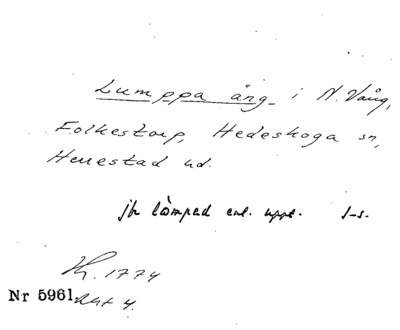 Lumppa äng i N. Vång,
Folkestorp, Hedeskoga sn,
Herrestad hd.
jfr lämpad enl. uppt. I-s.
Kr. 1774
Nr 5961 Akt 4.